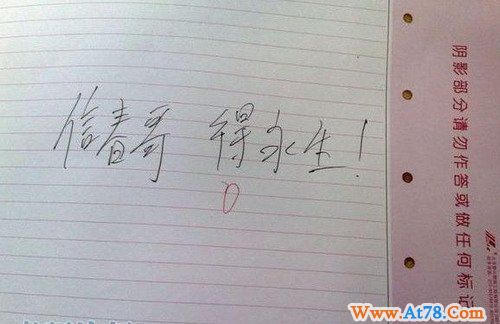 信春哥 得永生！
0
阴影部分请勿作答或做任何标记
Www.At78.Com